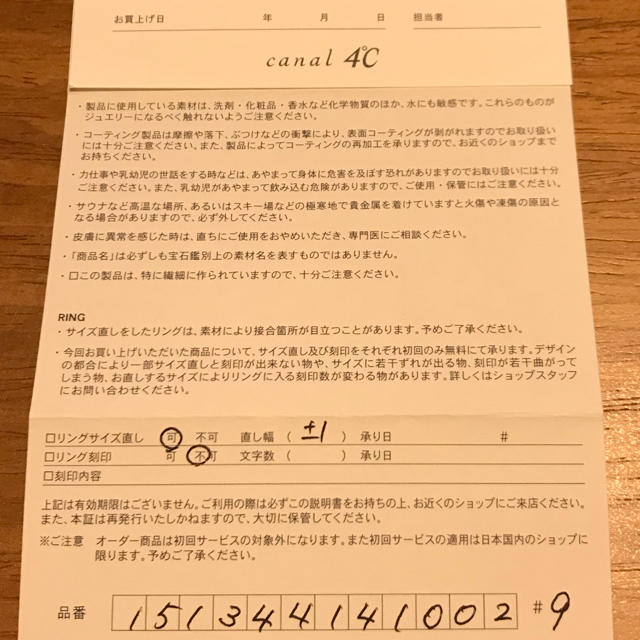 お買上げ日 年 月 日 担当者
canal 4℃
・製品に使用している素材は、洗剤・化粧品・香水など化学物質のほか、水にも敏感です。これらのものが
ジュエリーになるべく触れないようご注意ください。
・コーティング製品は摩擦や落下、ぶつけなどの衝撃により、表面コーティングが剥がれますのでお取り扱い
には十分ご注意ください。また、製品によってコーティングの再加工を承りますので、お近くのショップまで
お持ちください。
・力仕事や乳幼児の世話をする時などは、あやまって身体に危害を及ぼす恐れがありますのでお取り扱いには十分
ご注意ください。また、乳幼児があやまって飲み込む危険がありますので、ご使用・保管にはご注意ください。
・サウナなど高温な場所、あるいはスキー場などの極寒地で貴金属を着けていますと火傷や凍傷の原因と
なる場合がありますので、必ず外してください。
・皮膚に異常を感じた時は、直ちにご使用をおやめいただき、専門医にご相談ください。
・「商品名」は必ずしも宝石鑑別上の素材名を表すものではありません。
・□この製品は、特に繊細に作られていますので、十分ご注意ください。
RING
・サイズ直しをしたリングは、素材により接合箇所が目立つことがあります。予めご了承ください。
・今回お買い上げいただいた商品について、サイズ直し及び刻印をそれぞれ初回のみ無料にて承ります。デザイン
の都合により一部サイズ直しと刻印が出来ない物や、サイズに若干ずれが出る物、刻印が若干曲がって
しまう物、お直しするサイズによりリングに入る刻印数が変わる物があります。詳しくはショップスタッフ
にお問い合わせください。
□リングサイズ直し 可 不可 直し幅 ( ±1 ) 承り日 #
□リング刻印 可 不可 文字数 ( ) 承り日
□刻印内容
上記は有効期限はございません。ご利用の際は必ずこの説明書をお持ちの上、お近くのショップにご来店ください。
また、本証は再発行いたしかねますので、大切に保管してください。
※ご注意 オーダー商品は初回サービスの対象外になります。また初回サービスの適用は日本国内のショップに
限ります。予めご了承ください。
品番 151344141002 #9